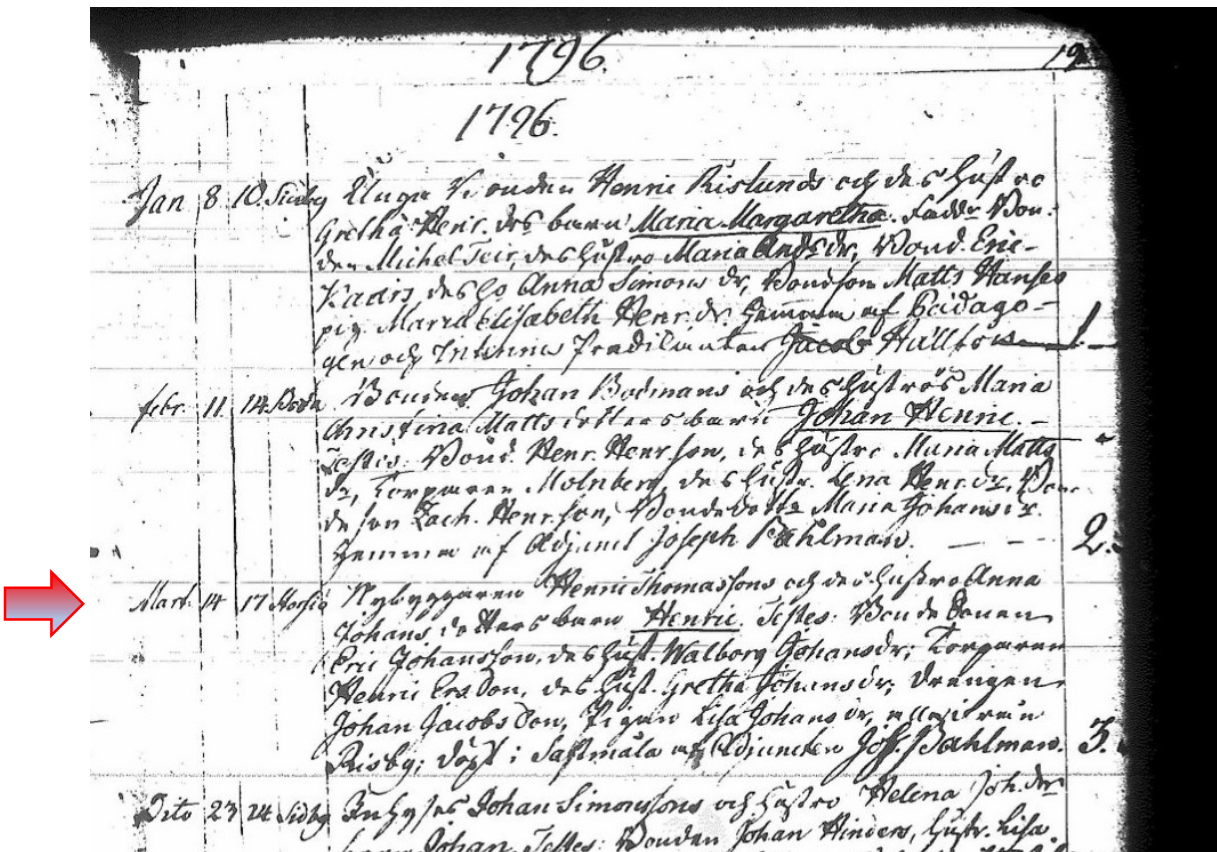 1796. 19
1796.
Jan 8 10 Unga Bonden Henric Rislunds och des Hustro
Gretha Henr. drs barn Maria Margaretha. Bon-
den Michel Teir, des Hustro Maria Ands dr, Bond. Eric
des Anna Simons dr, Bondson Matts Hanses
pig. Maria Elisabeth Henr. dr. af Pædago-
gen och Jacob 1
febr. 11 14 Bonden Johan Bodmans och des Hustros Maria
Christina Matts dotters barn Johan Henric. –
Testes: Bond. Henr. Henrson, des Hustro Maria Matts
dr, Torparen Molnberg, des Hustr. Lena Henr. dr, Bon-
de son Zach. Henrson, Bondedottr Maria Johans dr.
af Adjunct Joseph Pahlman. – – – 2.
Mart. 14 17 Nybyggaren Henric Thomassons och des Hustro Anna
Johans dotters barn Henric. Testes: Bonde Sonen
Eric Johansson, des Hust. Walborg Johansdr; Torparen
Henric Ersson, des Hust. Gretha Johans dr, Drengen
Johan Jacobsson, Pigan Lisa Johans dr, ifrån
Risby; döpt i Sastmåla af Adjuncten Jos. Pahlman. 3.
Dito 23 24 Sidby Inhyses Johan Simonssons och Hustro Helena Joh. dr
barn Johan. Testes: Bonden Johan Hinders, Hustr. Lisa